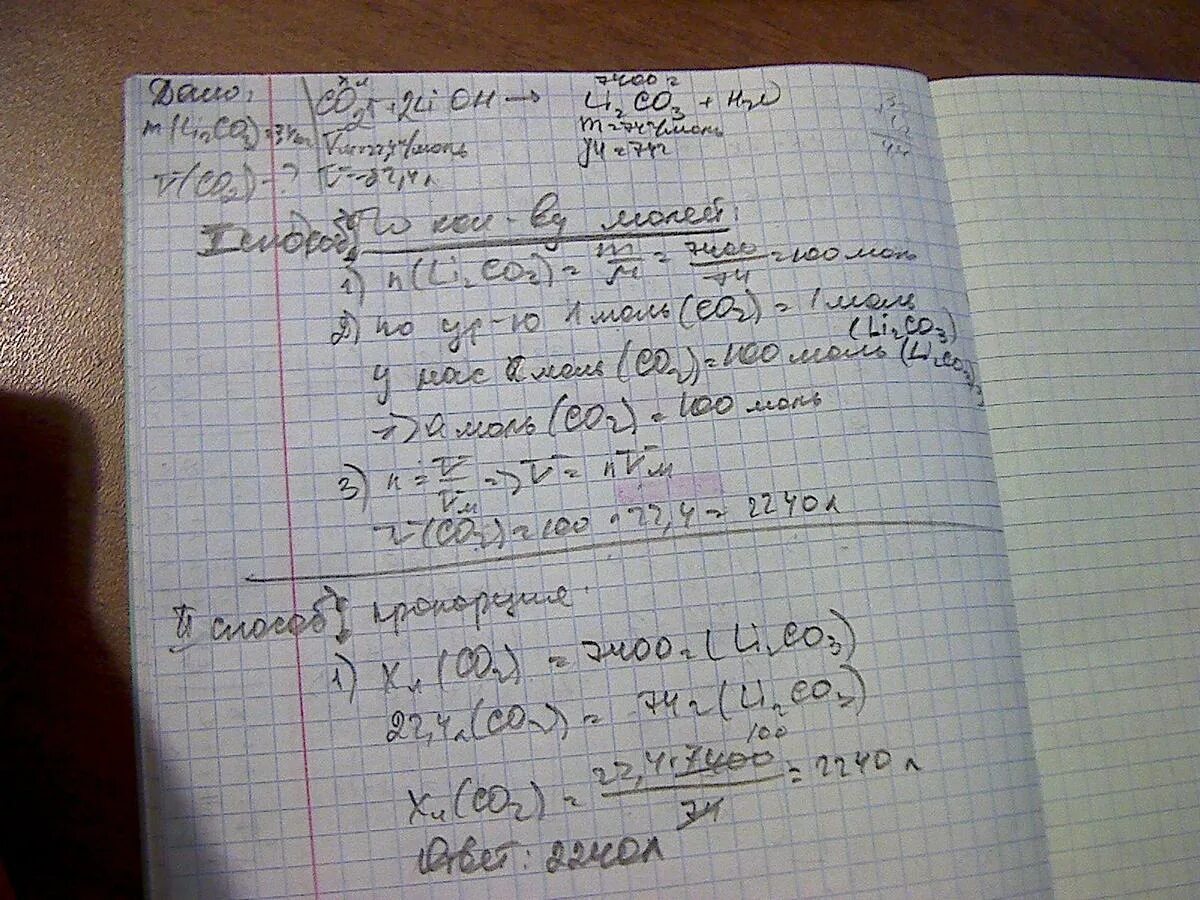 Дано:
m(Li₂CO₃)=7,4кг
V(CO₂)-?
x л
CO₂↑+2LiOH→
Vм=22,4л/моль
V=22,4л
7400г
Li₂CO₃ + H₂O
m=74г/моль
M=74г
44
I способ) По кол-ву молей:
1) n(Li₂CO₂)= m/M = 7400/74 =100моль
2) по ур-ю 1моль(CO₂)=1моль
(Li₂CO₃)
у нас a моль(CO₂)=100моль(Li₂CO₃)
=>a моль(CO₂)=100моль
3) n=V/Vм=>V= nVм
V(CO₂)=100·22,4= 2240л
II способ) пропорция
1) Xл(CO₂) = 7400г(Li₂CO₃)
22,4л(CO₂)= 74г(Li₂CO₃)
100
Xл(CO₂) = 22,4·7400/74 =2240л
Ответ: 2240л